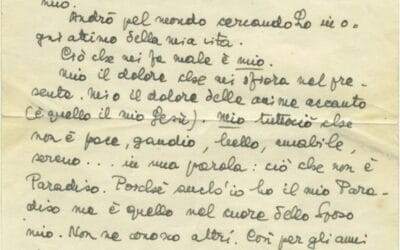 mio.
Andrò pel mondo cercandoLo in o-
gni attimo della mia vita.
Ciò che mi fa male è mio.
Mio il dolore che mi sfiora nel pre-
sente. Mio il dolore delle anime accanto
(è quello il mio Gesù). Mio tuttociò che
non è pace, gaudio, bello, amabile,
sereno... in una parola: ciò che non è
Paradiso. Poiché anch'io ho il mio Para-
diso ma è quello nel cuore dello Sposo
mio. Non ne conosco altri. Così per gli anni